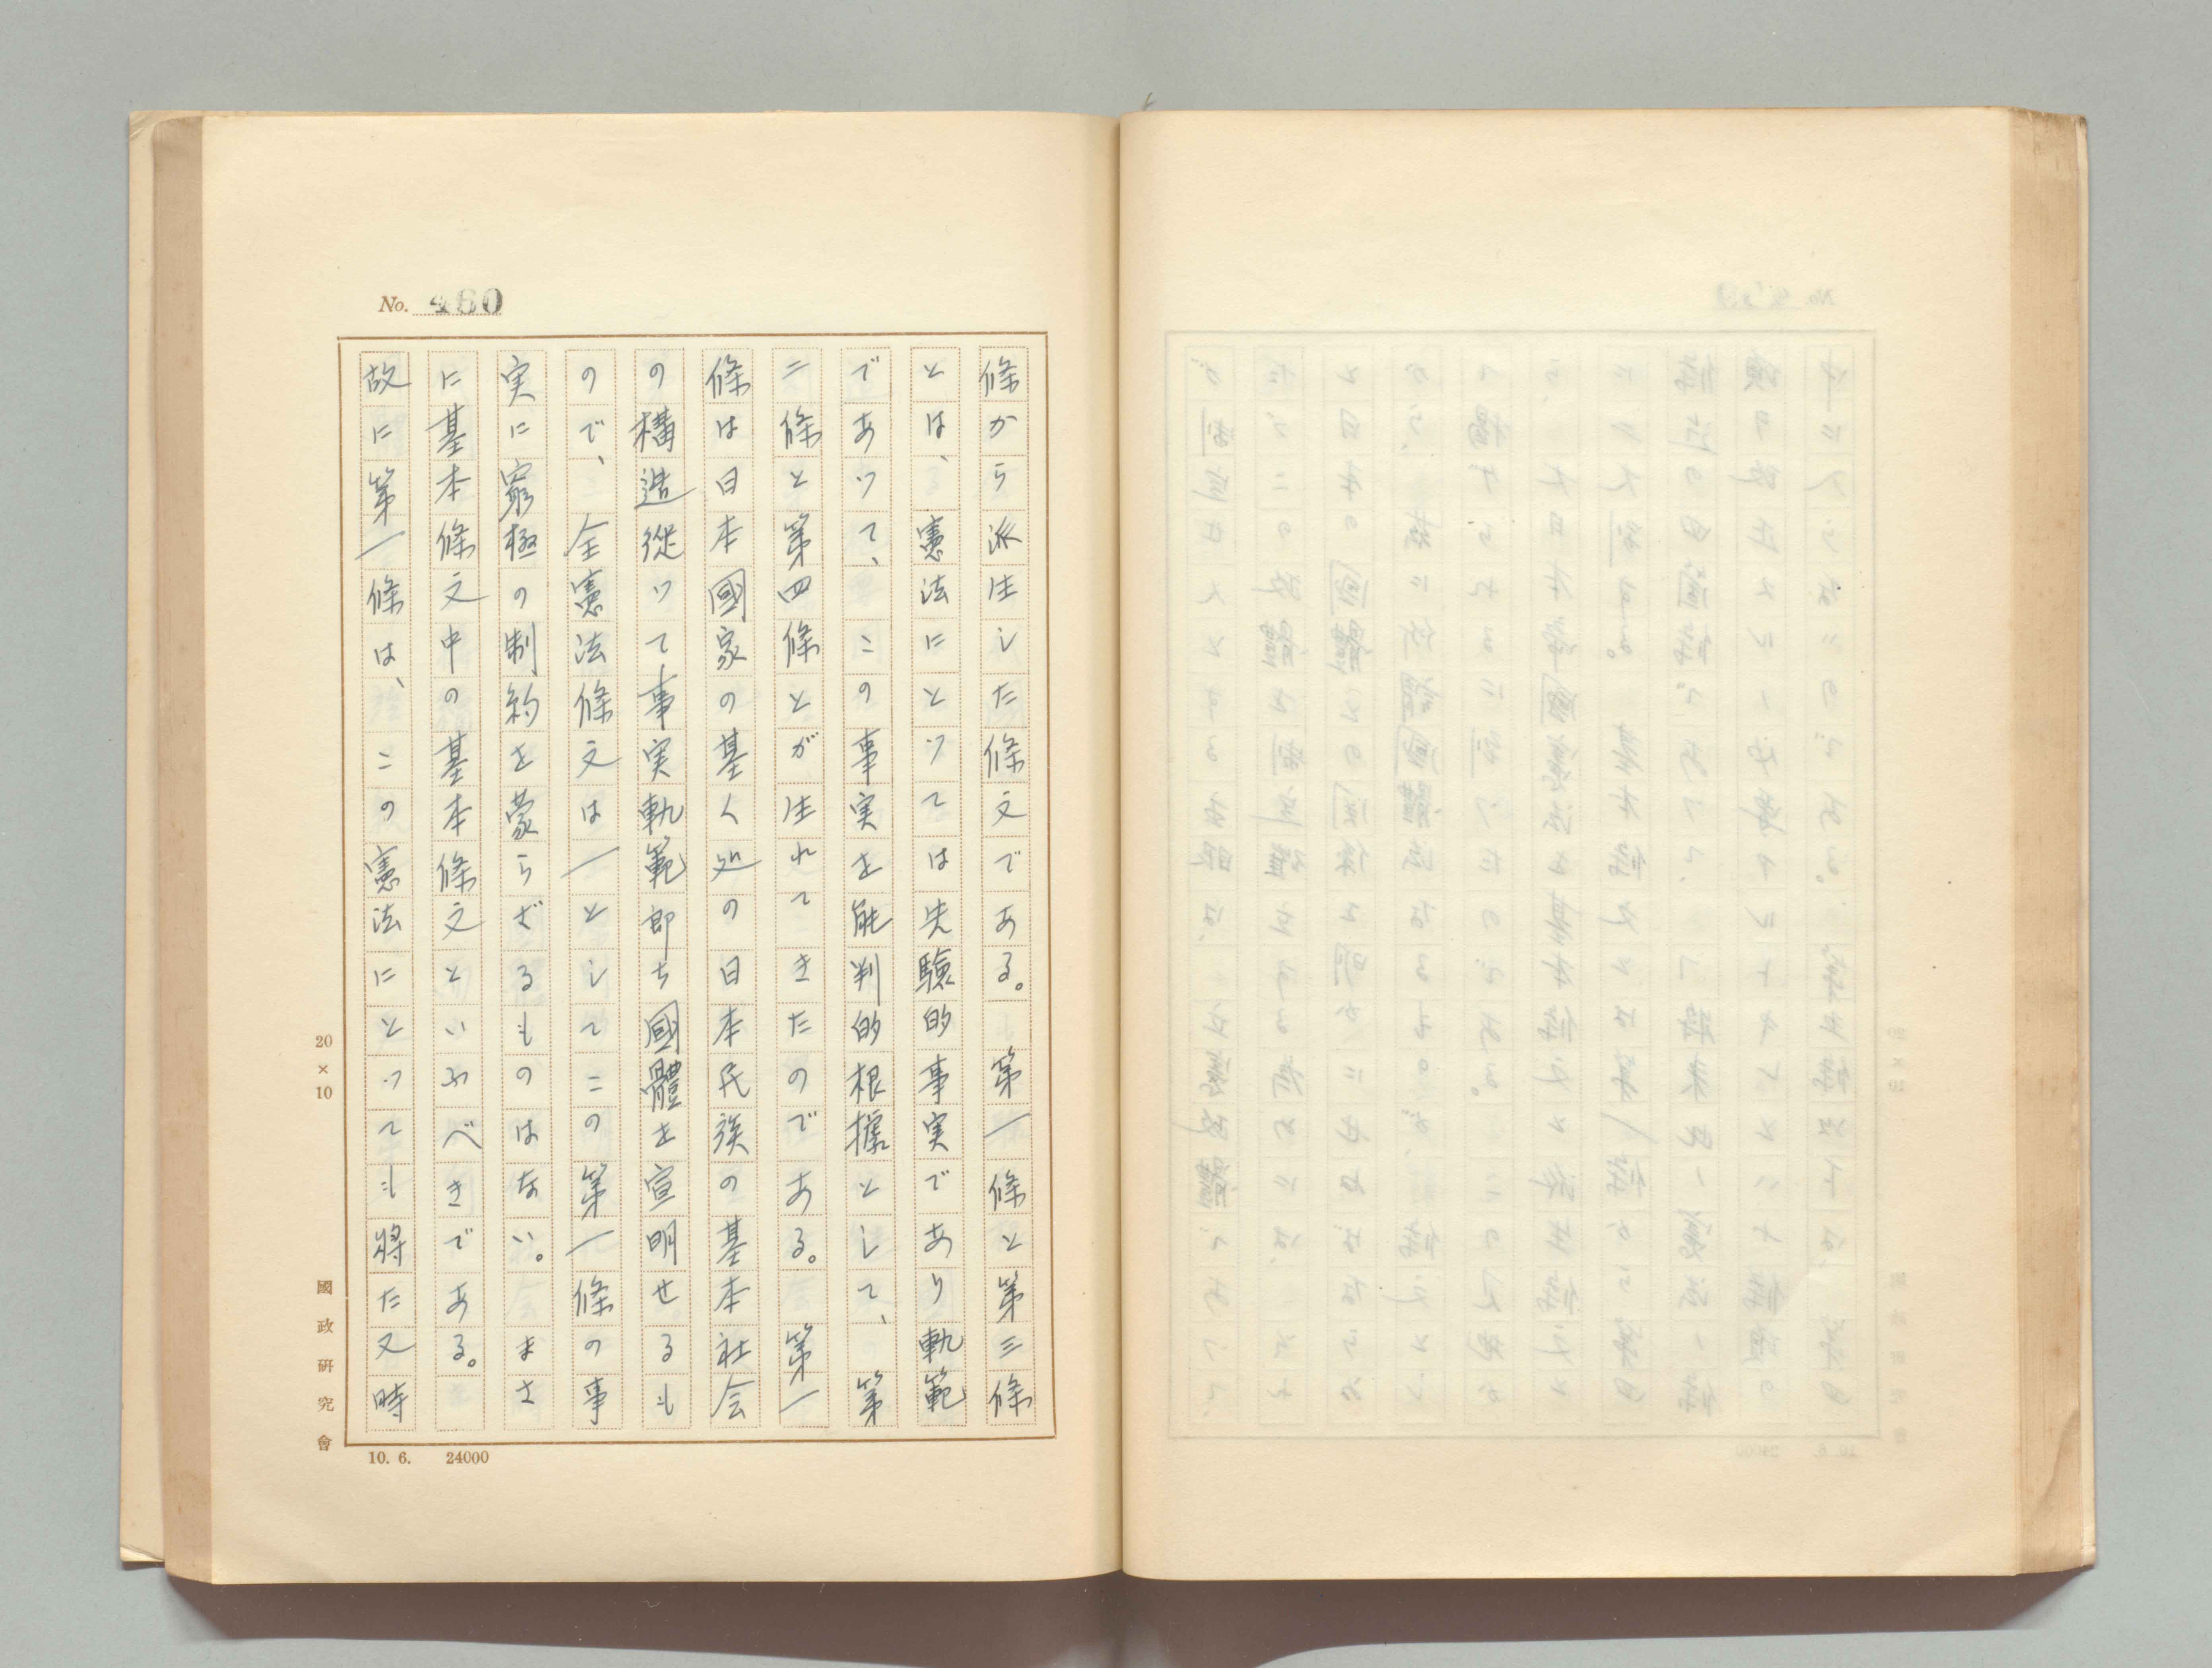 No. 460
條から派生した條文である。第一條と第三條
とは、憲法にとつては先驗的事実であり軌範
であつて、この事実を能判的根據として、第
二條と第四條とが生れてきたのである。第一
條は日本國家の基く処の日本民族の基本社会
の構造從つて事実軌範郎ち國體を宣明せるも
ので、全憲法條文は一としてこの第一條の事
実に窮極の制約を蒙らざるものはない。まさ
に基本條文中の基本條文といふべきである。
故に第一條は、この憲法にとつても將た又時
20×10
國政研究會
10. 6. 24000